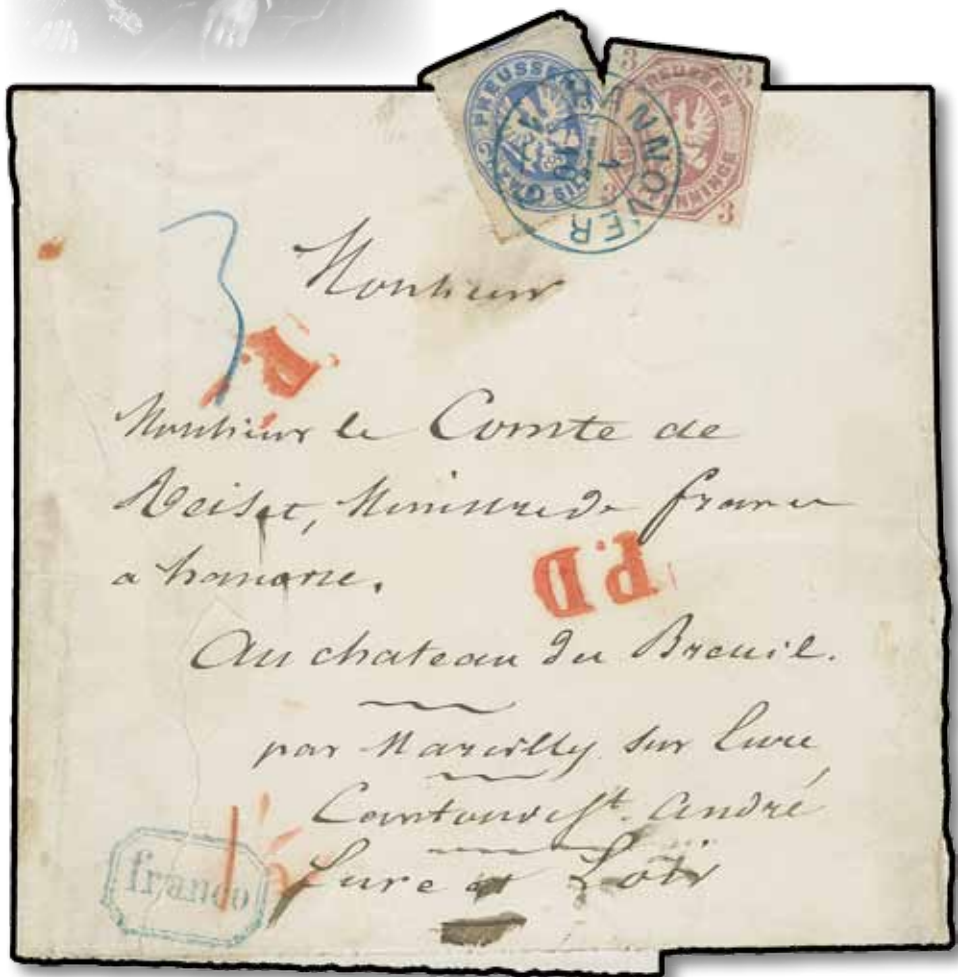 2 PREUSSEN
3 PREUSSEN 3
PFENNINGE 3
HANNOVER
1
10
3
Monsieur
Monsieur le Comte de
Reiset, Ministre de france
a hanovre.
P.D
Au chateau du Breuil.
par Marcilly sur Eure
Canton de St. André
Eure et Loir
franco